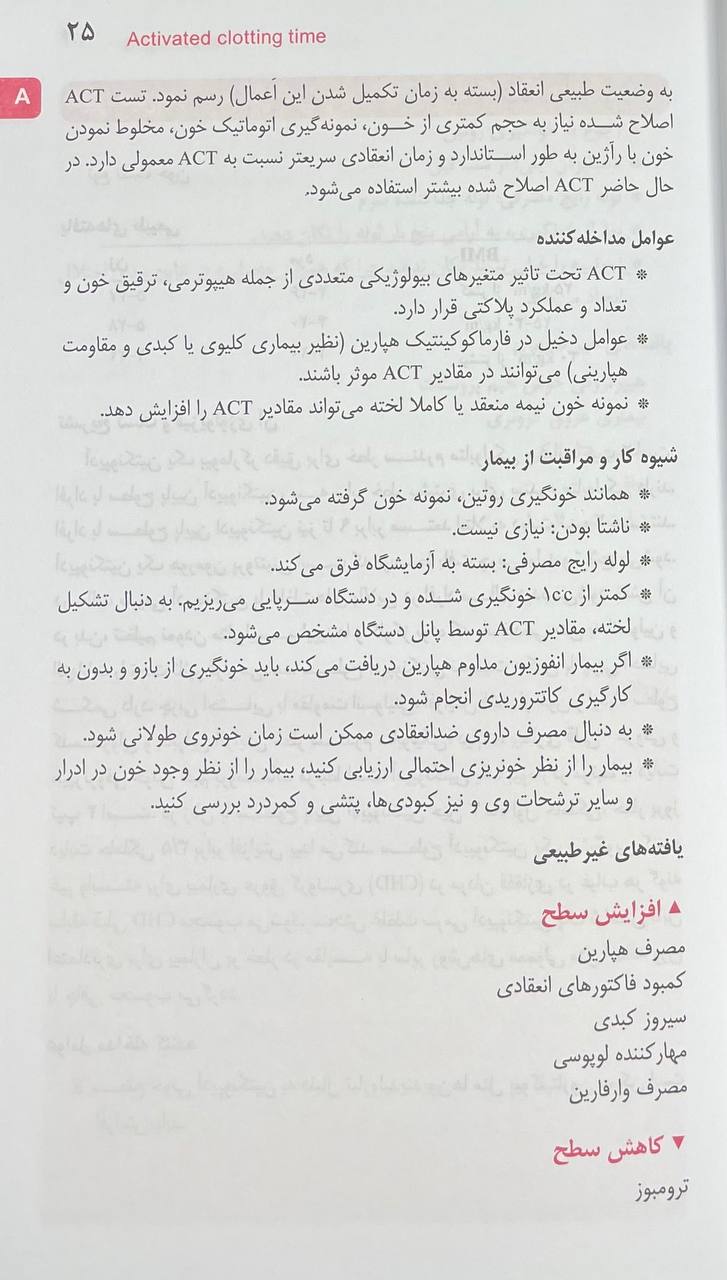 ۲۵ Activated clotting time
A
به وضعیت طبیعی انعقاد (بسته به زمان تکمیل شدن این اَعمال) رسم نمود. تست ACT
اصلاح شده نیاز به حجم کمتری از خون، نمونه‌گیری اتوماتیک خون، مخلوط نمودن
خون با رآژین به طور استاندارد و زمان انعقادی سریعتر نسبت به ACT معمولی دارد. در
حال حاضر ACT اصلاح شده بیشتر استفاده می‌شود.
عوامل مداخله‌کننده
* ACT تحت تاثیر متغیرهای بیولوژیکی متعددی از جمله هیپوترمی، ترقیق خون و
تعداد و عملکرد پلاکتی قرار دارد.
* عوامل دخیل در فارماکوکینتیک هپارین (نظیر بیماری کلیوی یا کبدی و مقاومت
هپارینی) می‌توانند در مقادیر ACT موثر باشند.
* نمونه خون نیمه منعقد یا کاملا لخته می‌تواند مقادیر ACT را افزایش دهد.
شیوه کار و مراقبت از بیمار
* همانند خونگیری روتین، نمونه خون گرفته می‌شود.
* ناشتا بودن: نیازی نیست.
* لوله رایج مصرفی: بسته به آزمایشگاه فرق می‌کند.
* کمتر از ۱cc خونگیری شده و در دستگاه سرپایی می‌ریزیم. به دنبال تشکیل
لخته، مقادیر ACT توسط پانل دستگاه مشخص می‌شود.
* اگر بیمار انفوزیون مداوم هپارین دریافت می‌کند، باید خونگیری از بازو و بدون به
کارگیری کاتتروریدی انجام شود.
* به دنبال مصرف داروی ضدانعقادی ممکن است زمان خونروی طولانی شود.
* بیمار را از نظر خونریزی احتمالی ارزیابی کنید، بیمار را از نظر وجود خون در ادرار
و سایر ترشحات وی و نیز کبودی‌ها، پتشی و کمردرد بررسی کنید.
یافته‌های غیرطبیعی
▲ افزایش سطح
مصرف هپارین
کمبود فاکتورهای انعقادی
سیروز کبدی
مهارکننده لوپوسی
مصرف وارفارین
▼ کاهش سطح
ترومبوز